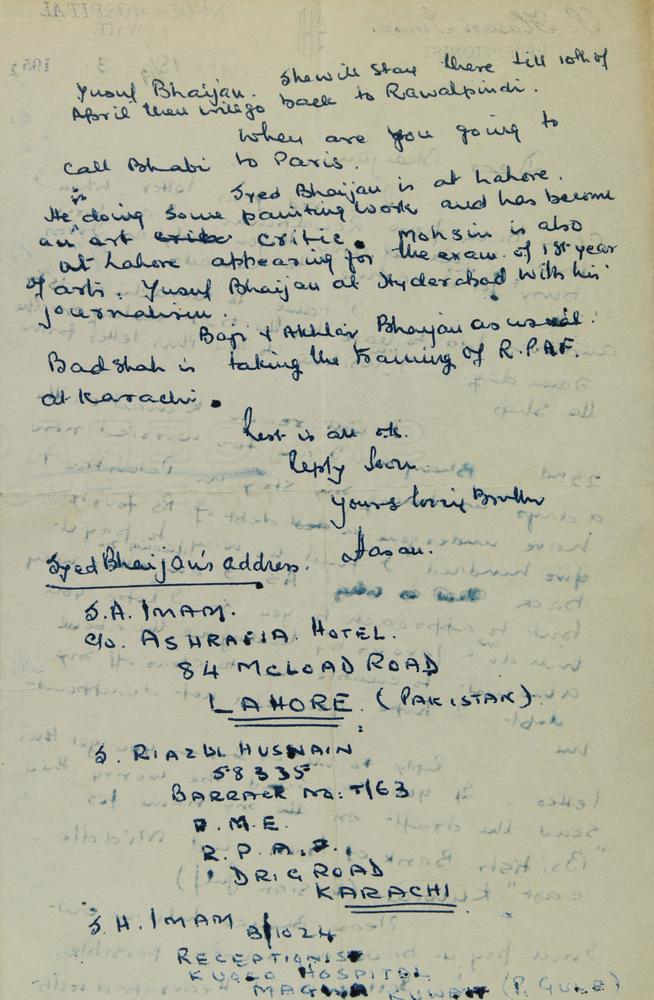 Yusuf Bhaijan. She will stay there till 10th of
April then will go back to Rawalpindi.
When are you going to
call Bhabi to Paris.
Syed Bhaijan is at Lahore.
He is doing some painting work and has become
an art critic. Mohsin is also
at Lahore appearing for the exam. of 1st year
of arts. Yusuf Bhaijan at Hyderabad with his
journalism.
Baji & Akhtar Bhaijan as usual.
Badshah is taking the training of R.P.A.F.
at Karachi.
Rest is all ok.
Reply soon
Yours loving Brother
Hasan.
Syed Bhaijan's address.
S.A. IMAM.
C/o. ASHRAFIA HOTEL.
84 MCLOAD ROAD
LAHORE. (PAKISTAN)
S. RIAZUL HUSNAIN
58335
BARRACK NO: T/63
P.M.E.
R.P.A.F.
DRIG ROAD
KARACHI
S.H. IMAM B/1024
RECEPTIONIST
KUOCO HOSPITAL
MAGWA KUWAIT (P. GULF)